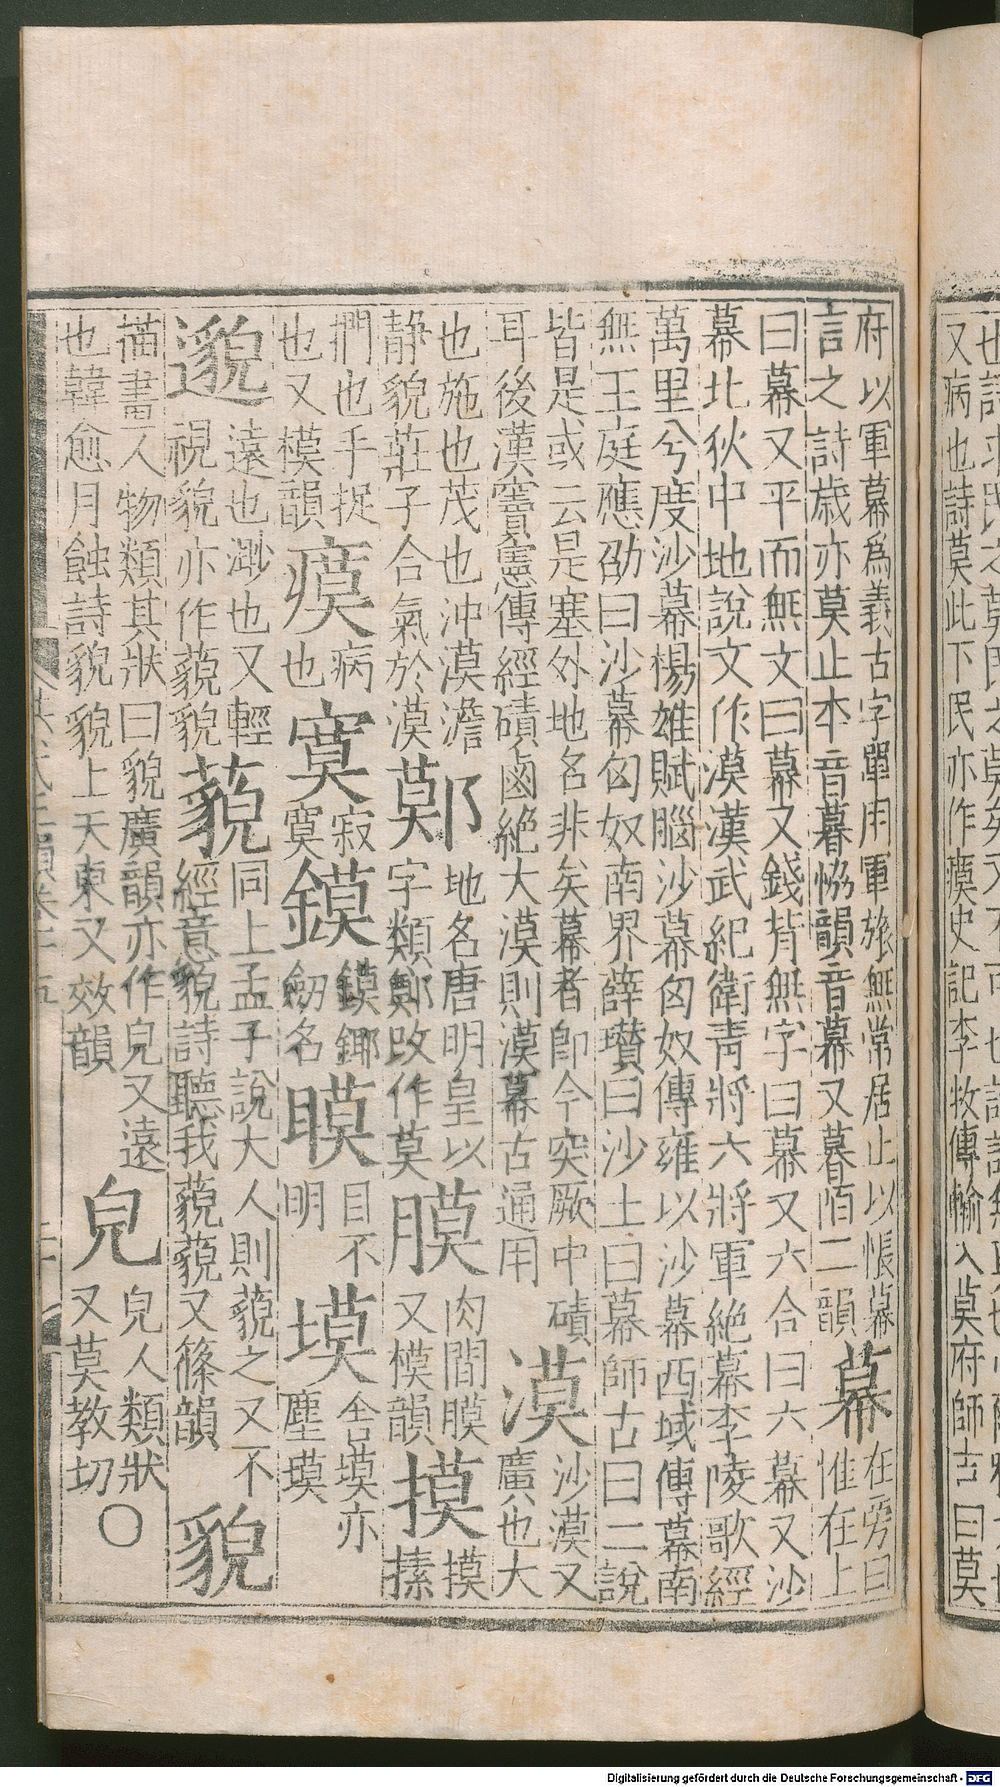 府以軍幕爲義古字單用軍旅無常居止以帳幕
言之詩歲亦莫止本音暮恊韻音幕又暮陌二韻
幕
在旁曰
惟在上
曰幕又平而無文曰幕又錢背無字曰幕又六合曰六幕又沙
幕北狄中地說文作漠漢武紀衛青將六將軍絶幕李陵歌經
萬里兮度沙幕楊雄賦腦沙幕匈奴傳雍以沙幕西域傳幕南
無王庭應劭曰沙幕匈奴南界薛瓉曰沙土曰幕師古曰二說
皆是或云是塞外地名非矣幕者即今突厥中磧
耳後漢竇憲傳經磧鹵絶大漠則漠幕古通用
漠
沙漠又
廣也大
也施也茂也沖漠澹
静貌莊子合氣於漠
鄚
地名唐明皇以
字類鄭改作莫
膜
肉間膜
又模韻
摸
摸
捼
捫也手捉
也又模韻
瘼
病
也
寞
寂
寞
鏌
鏌鎁
劒名
瞙
目不
明
塻
舎塻亦
塵塻
邈
遠也渺也又輕
視貌亦作藐貌
藐
同上孟子說大人則藐之又不
經意貌詩聽我藐藐又篠韻
貌
描畫人物類其狀曰貌廣韻亦作皃又遠
也韓愈月蝕詩貌貌上天東又效韻
皃
皃人類狀
又莫教切
〇
又病也詩莫此下民亦作瘼史記李牧傳輸入莫府師古曰莫
Digitalisierung gefördert durch die Deutsche Forschungsgemeinschaft - DFG